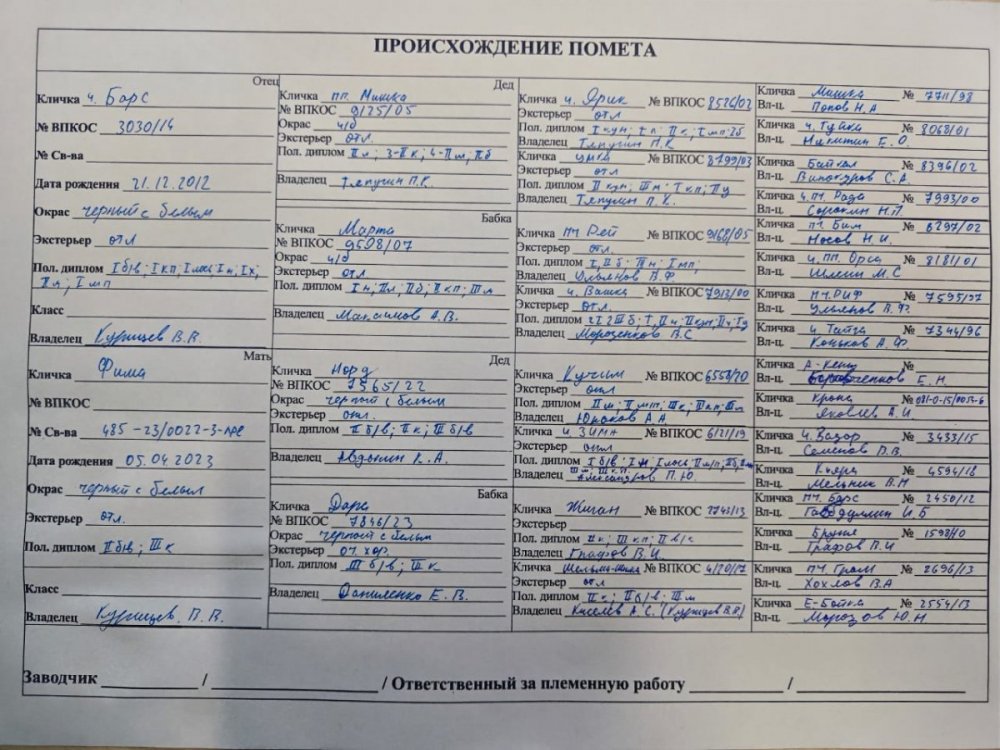 ПРОИСХОЖДЕНИЕ ПОМЕТА
Отец
Кличка ч. Барс
№ ВПКОС 3030/14
№ Св-ва
Дата рождения 21.12.2012
Окрас черный с белым
Экстерьер отл
Пол. диплом I б/в; I кп; I н; I х;
II л; I мп
Класс
Владелец Курицев В.В.
Мать
Кличка Фима
№ ВПКОС
№ Св-ва 485-23/0022-3
Дата рождения 05.04.2023
Окрас черный с белым
Экстерьер отл.
Пол. диплом II б/в; III к
Класс
Владелец Курицев В.В.
Дед
Кличка пч. Мишка
№ ВПКОС 9125/05
Окрас ч/б
Экстерьер отл.
Пол. диплом II л; 3-II к; 4-II м; II б
Владелец Тяпугин П.К.
Бабка
Кличка Марта
№ ВПКОС 9508/07
Окрас ч/б
Экстерьер отл
Пол. диплом I н; II л; II б; II кп; III м
Владелец Максимов А.В.
Дед
Кличка Норд
№ ВПКОС 7565/22
Окрас черный с белым
Экстерьер отл.
Пол. диплом II б/в; II к; III б/в
Владелец Авдонин К.А.
Бабка
Кличка Дара
№ ВПКОС 7846/23
Окрас черный с белым
Экстерьер оч. хор.
Пол. диплом III б/в; III к
Владелец Даниленко Е.В.
Кличка ч. Ярик № ВПКОС 8526/02
Экстерьер отл
Пол. диплом
Владелец Тяпугин П.К.
Кличка Умка № ВПКОС 8799/03
Экстерьер отл
Пол. диплом
Владелец Тяпугин П.К.
Кличка пч Рей № ВПКОС 9168/05
Экстерьер отл.
Пол. диплом I, II б; III н; I мп;
Владелец Ульянов В.Ф.
Кличка ч. Вашка № ВПКОС 7913/00
Экстерьер отл.
Пол. диплом
Владелец Морозенков В.С
Кличка Кучум № ВПКОС 6558/20
Экстерьер отл
Пол. диплом
Владелец Юшков А.А.
Кличка ч. Зима № ВПКОС 6121/19
Экстерьер отл
Пол. диплом
Владелец Александров П.Ю.
Кличка Жиган № ВПКОС 2743/13
Экстерьер
Пол. диплом II к; III кп; II в/с
Владелец Графов В.И.
Кличка № ВПКОС 4120/17
Экстерьер отл
Пол. диплом II к; II б/в; III м
Владелец Киселев А.С. (Курицев В.В)
Кличка Мишка № 7711/98
Вл-ц. Попов Н.А
Кличка ч. Гуйка № 8068/01
Вл-ц. Никитин Е.О.
Кличка Байкал № 8396/02
Вл-ц. Винокуров С.А.
Кличка ч.пч. Рада № 7993/00
Вл-ц. Сорокин Н.П.
Кличка пч Бим № 8297/02
Вл-ц. Носов Н.И.
Кличка ч. пп. Орса № 8181/01
Вл-ц. Шлеин М.С
Кличка пч. РИФ № 7595/97
Вл-ц. Ульянов В.Ф.
Кличка ч. Тайга № 7344/96
Вл-ц. Коньков А.Ф.
Кличка №
Вл-ц. Е.Н.
Кличка Крона № 081-0-15/0013-6
Вл-ц. Яковлев А.И.
Кличка ч. Вазор № 3433/15
Вл-ц. Семенов Д.В.
Кличка Кияра № 4594/18
Вл-ц. Мельник В.Н
Кличка пч. Барс № 2450/12
Вл-ц. Габдуллин И.Б
Кличка № 1598/10
Вл-ц. Графов В.И
Кличка пч Гром № 2696/13
Вл-ц. Хохлов В.А
Кличка Е-Байка № 2554/13
Вл-ц. Морозов Ю.Н
Заводчик / / Ответственный за племенную работу /